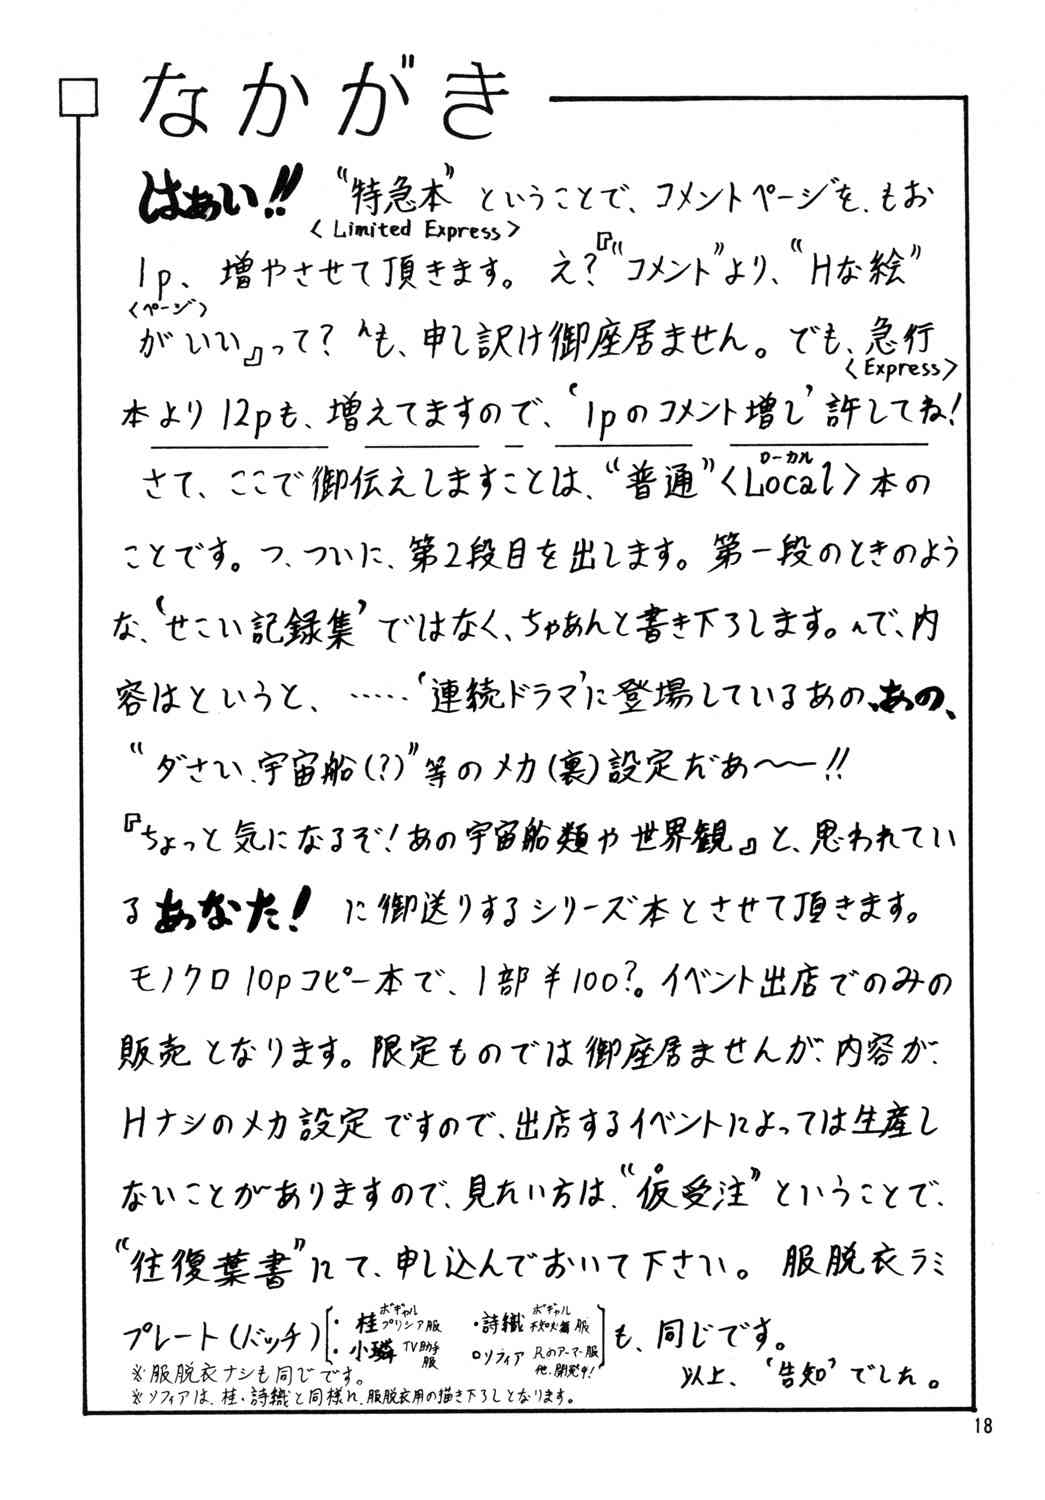 なかがき
はぁい!! “特急本” ということで、コメントページを、もお
〈 Limited Express 〉
1p、増やさせて頂きます。え?『“コメント”より、“Hな絵”
〈ページ〉
がいい』って? んも、申し訳け御座居ません。でも、急行
〈Express〉
本より12pも、増えてますので、‘1pのコメント増し’許してね!
さて、ここで御伝えしますことは、“普通”〈Local〉本の
ローカル
ことです。つ、ついに、第2段目を出します。第一段のときのよう
な、‘せこい記録集’ではなく、ちゃあんと書き下ろします。んで、内
容はというと、……‘連続ドラマ’に登場しているあの、あの、
“ダさい、宇宙船(?)”等のメカ(裏)設定だあ〜〜!!
『ちょっと気になるぞ!あの宇宙船類や世界観』と、思われてい
るあなた! に御送りするシリーズ本とさせて頂きます。
モノクロ10pコピー本で、1部¥100?。イベント出店でのみの
販売となります。限定ものでは御座居ませんが、内容が、
Hナシのメカ設定ですので、出店するイベントによっては生産し
ないことがありますので、見たい方は、“仮受注”ということで、
“往復葉書”にて、申し込んでおいて下さい。服脱衣ラミ
プレート(バッチ)[・桂 ボギャル プリシア服 ・詩織 ボギャル 服
・小璘 TV助手服 ○ソフィア Rのアーマー服 他、開発中!]も、同じです。
※服脱衣ナシも同じです。
以上、‘告知’でした。
※ソフィアは、桂・詩織と同様に、服脱衣用の描き下ろしとなります。
18